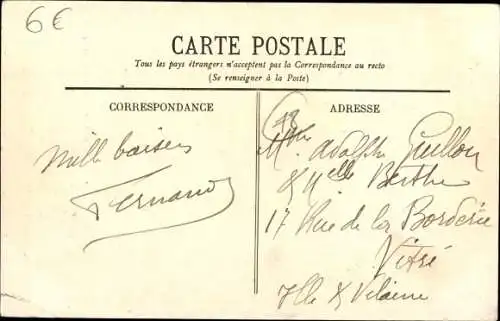 6€
CARTE POSTALE
Tous les pays étrangers n'acceptent pas la Correspondance au recto
(Se renseigner à la Poste)
CORRESPONDANCE
ADRESSE
Mille baisers
Fernand
Adolphe Guillon
& Melle Berthe
17 Rue de la Borderie
Vitré
Ille & Vilaine